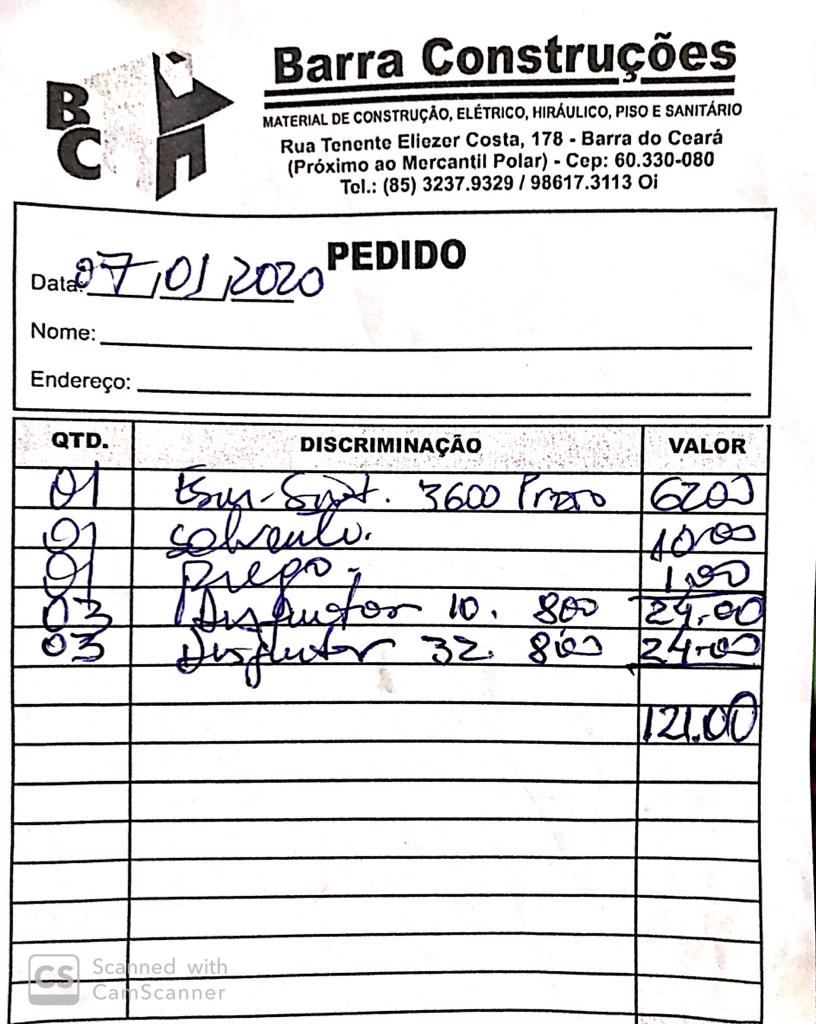 BC
Barra Construções
MATERIAL DE CONSTRUÇÃO, ELÉTRICO, HIRÁULICO, PISO E SANITÁRIO
Rua Tenente Eliezer Costa, 178 - Barra do Ceará
(Próximo ao Mercantil Polar) - Cep: 60.330-080
Tel.: (85) 3237.9329 / 98617.3113 Oi
PEDIDO
Data: 07/01/2020
Nome:
Endereço:
QTD. DISCRIMINAÇÃO VALOR
01 3600 6200
01 solvente. 10.00
01 prego. 1,00
03 Disjuntor 10. 800 24.00
03 Disjuntor 32. 800 24.00
121.00
CS Scanned with
CamScanner